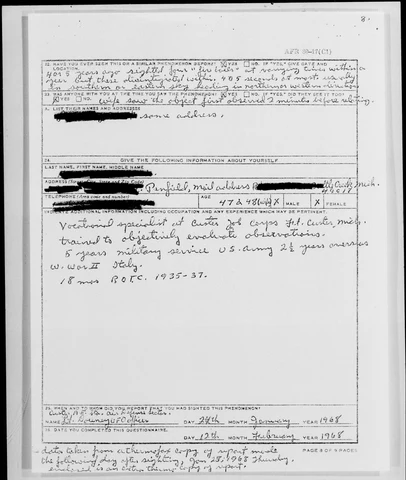 8.
AFR 80-17(C1)
32. HAVE YOU EVER SEEN THIS OR A SIMILAR PHENOMENON BEFORE? YES NO. IF "YES" GIVE DATE AND LOCATION.
4 or 5 years ago sighted four "fireballs" at varying times within a
year but these disintegrated within 4 or 5 seconds at most usually
in southern or eastern sky heading in northern or western directions
33. WAS ANYONE WITH YOU AT THE TIME YOU SAW THE PHENOMENON? YES NO. IF "YES" DID THEY SEE IT TOO?
YES NO. Wife saw the object first observed 2 minutes before
A. LIST THEIR NAMES AND ADDRESSES
same address.
34. GIVE THE FOLLOWING INFORMATION ABOUT YOURSELF
LAST NAME, FIRST NAME, MIDDLE NAME
ADDRESS
Penfield, mail address Creek, Mich.
TELEPHONE AGE 47 & 48 (wife) MALE X FEMALE X
INDICATE ADDITIONAL INFORMATION INCLUDING OCCUPATION AND ANY EXPERIENCE WHICH MAY BE PERTINENT.
Vocational specialist at Custer Job Corps Ft. Custer, Mich.
trained to objectively evaluate observations.
5 years military service U.S. Army 2½ years overseas
W. War II Italy.
18 mos R.O.T.C. 1935-37.
35. WHEN AND TO WHOM DID YOU REPORT THAT YOU HAD SIGHTED THIS PHENOMENON?
DAY 24th MONTH January YEAR 1968
36. DATE YOU COMPLETED THIS QUESTIONNAIRE
DAY 12th MONTH February YEAR 1968
data taken from a thermofax copy of report made
the following day after sighting, Jan 25, 1968 Thursday.
enclosed is an extra thermo copy of report.